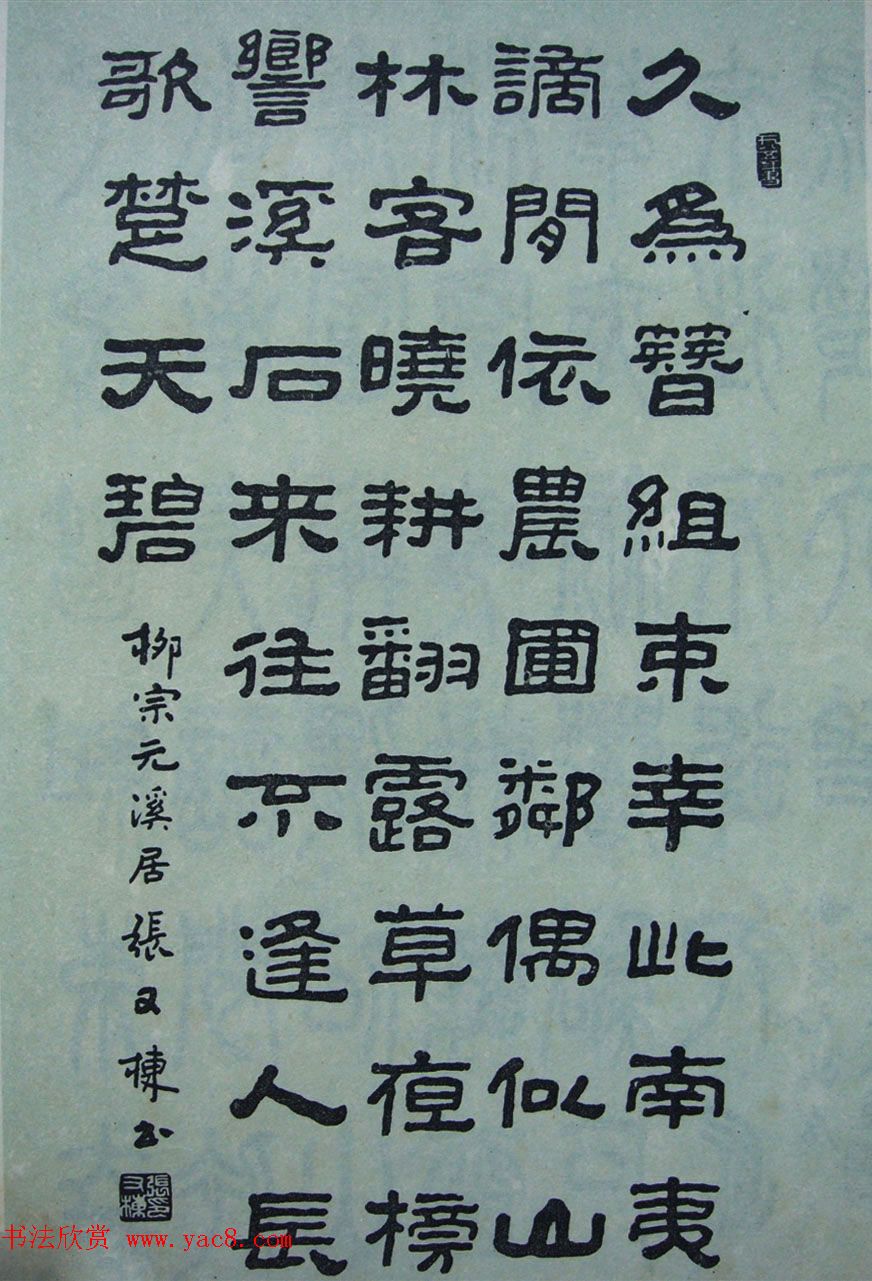 久爲簪組束幸此南夷
謫閒依農圃鄰偶似山
林客曉耕翻露草夜榜
響溪石来往不逢人長
歌楚天碧
柳宗元溪居 張又棟书
張又棟印
书法欣赏 www.yac8.com